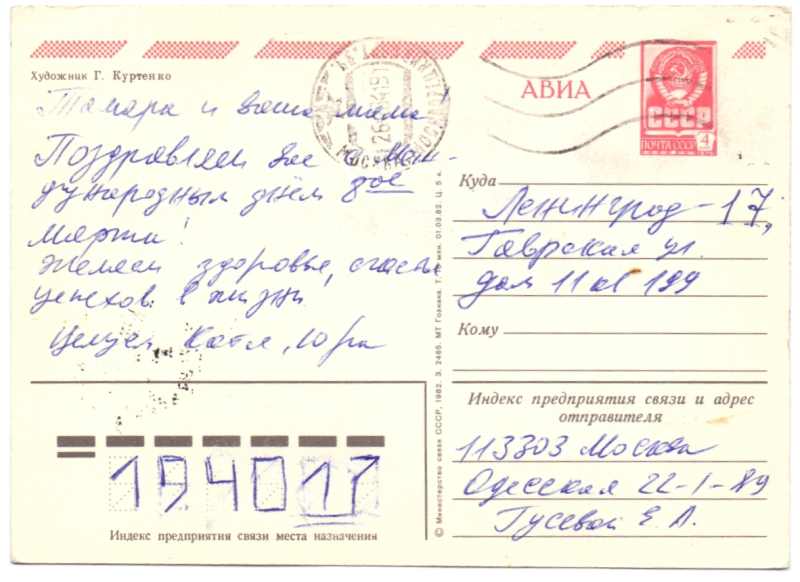 Художник Г. Куртенко
АВИА
СССР
ПОЧТА СССР 4
Тамара и ваша мама!
Поздравляем вас с Меж-
дународным днём 8ое
марта!
Желаем здоровья, счастья
успехов в жизни
Целуем Катя, Юра
Куда Ленинград-17,
Гаврская ул.
дом 11 кв 199
Кому
Индекс предприятия связи и адрес
отправителя
113303 Москва
Одесская 22-1-89
Гусевой Е. А.
194017
Индекс предприятия связи места назначения
© Министерство связи СССР, 1982. З. 2465. МТ Гознака. 01.03.82. Ц. 5 к.